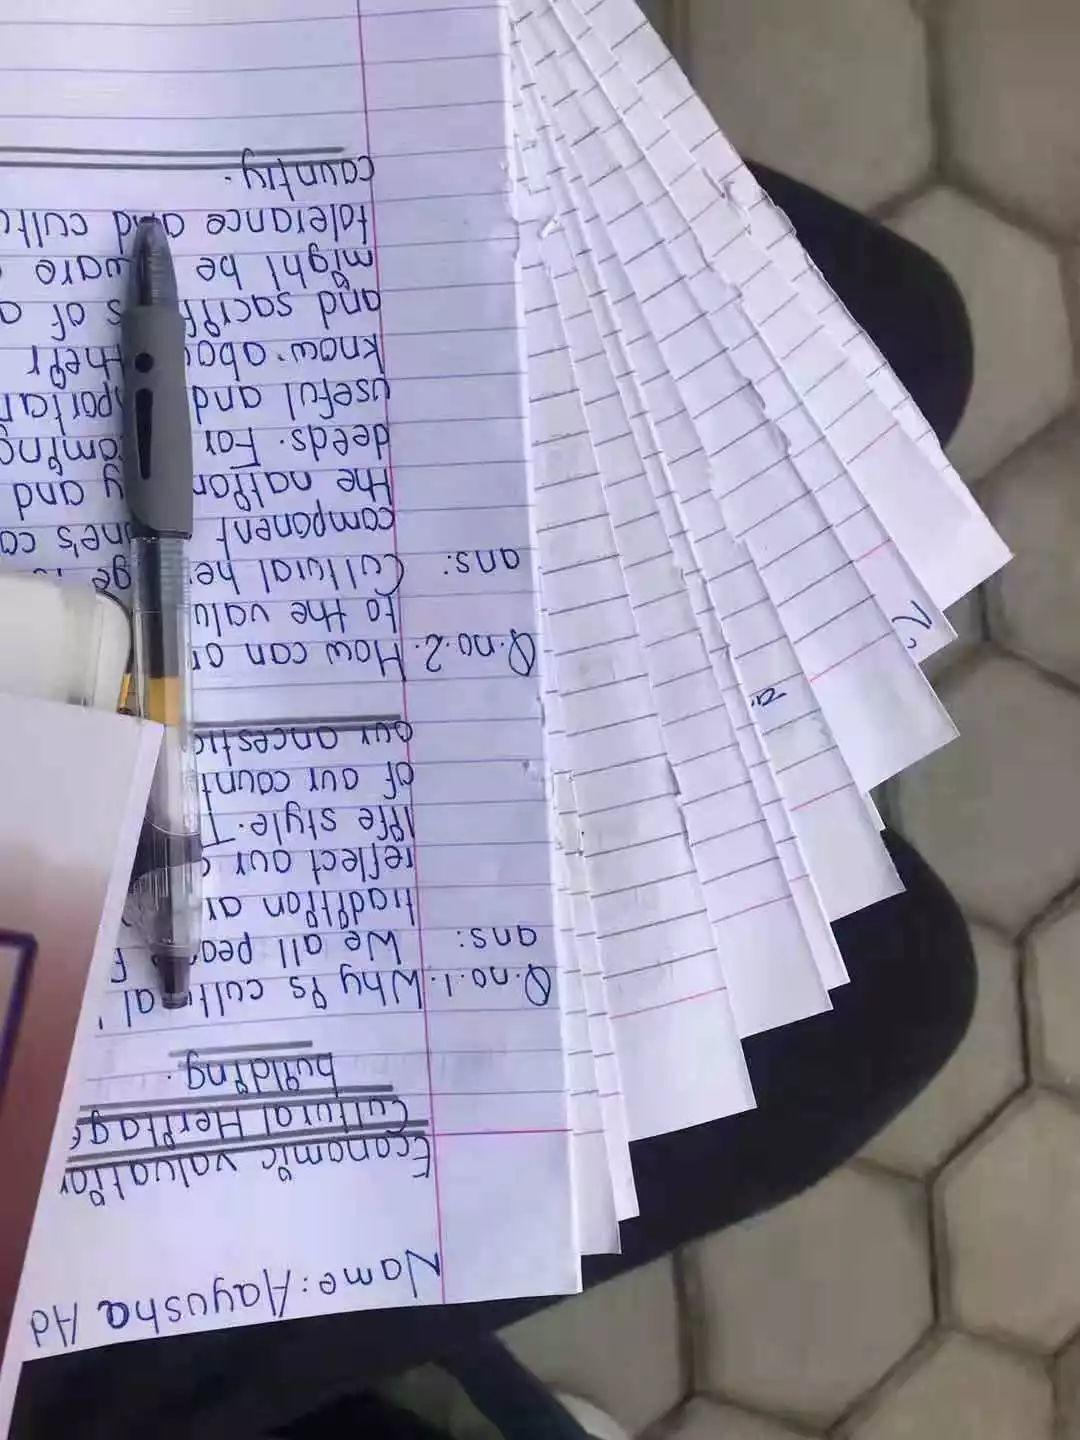 Name: Aayusha Ad
Economic valuation
Cultural Heritage
building.
Q.no.1. Why is cultural
ans: We all peo
tradition an
reflect our
life style. T
of our count
our ancest
Q.no.2. How can
to the valu
ans: Cultural he ge
component ne's co
the nation y and
deeds. For coming
useful and
know abo their
and sacrif s of a
might be ware
tolerance and cultu
country.